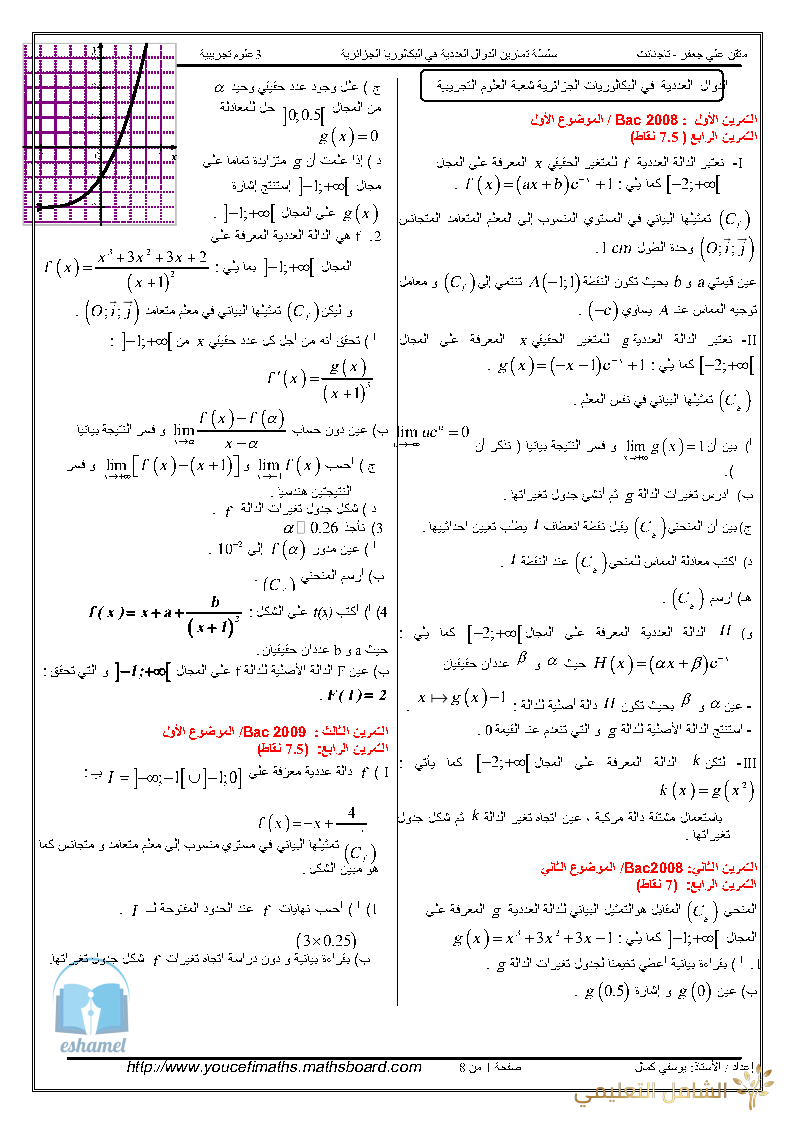 متقن علي جعفر - تاجنانت
سلسلة تمارين الدوال العددية في البكالوريا الجزائرية
3 علوم تجريبية
الدوال العددية في البكالوريات الجزائرية شعبة العلوم التجريبية
التمرين الأول : Bac 2008 / الموضوع الأول
التمرين الرابع ( 7.5 نقاط)
I- نعتبر الدالة العددية f للمتغير الحقيقي x المعرفة على المجال
[-2;+∞[ كما يلي : f(x)=(ax+b)e^{-x}+1 .
(C_f) تمثيلها البياني في المستوي المنسوب إلى المعلم المتعامد المتجانس
(O;i;j) وحدة الطول 1 cm
عين قيمتي a و b بحيث تكون النقطة A(-1;1) تنتمي إلى (C_f) و معامل
توجيه المماس عند A يساوي (-e) .
II- نعتبر الدالة العددية g للمتغير الحقيقي x المعرفة على المجال
[-2;+∞[ كما يلي : g(x)=(-x-1)e^{-x}+1 .
(C_g) تمثيلها البياني في نفس المعلم .
أ) بين أن lim_{x→+∞} g(x)=1 و فسر النتيجة بيانيا ( نذكر أن lim_{u→-∞} ue^u=0
).
ب) ادرس تغيرات الدالة g ثم أنشئ جدول تغيراتها .
ج) بين أن المنحني (C_g) يقبل نقطة انعطاف I يطلب تعيين احداثييها .
د) اكتب معادلة المماس للمنحي (C_g) عند النقطة I .
هـ) ارسم (C_g) .
و) H الدالة العددية المعرفة على المجال [-2;+∞[ كما يلي :
H(x)=(αx+β)e^{-x} حيث α و β عددان حقيقيان
- عين α و β بحيث تكون H دالة أصلية للدالة : x↦g(x)-1 .
- استنتج الدالة الأصلية للدالة g و التي تنعدم عند القيمة 0 .
III- لتكن k الدالة المعرفة على المجال [-2;+∞[ كما يأتي :
k(x)=g(x²)
باستعمال مشتقة دالة مركبة ، عين اتجاه تغير الدالة k ثم شكل جدول
تغيراتها .
التمرين الثاني: Bac2008/ الموضوع الثاني
التمرين الرابع: (7 نقاط)
المنحى (C_g) المقابل هو التمثيل البياني للدالة العددية g المعرفة على
المجال ]-1;+∞[ كما يلي : g(x)=x³+3x²+3x-1
1. أ) بقراءة بيانية أعطي تخمينا لجدول تغيرات الدالة g .
ب) عين g(0) و إشارة g(0.5) .
y
x
0
ج ) علل وجود عدد حقيقي وحيد α
من المجال ]0;0.5[ حل للمعادلة
g(x)=0
د ) إذا علمت أن g متزايدة تماما على
مجال ]-1;+∞[ إستنتج إشارة
g(x) على المجال ]-1;+∞[ .
2. f هي الدالة العددية المعرفة على
المجال ]-1;+∞[ بما يلي : f(x)=(x³+3x²+3x+2)/(x+1)²
و ليكن (C_f) تمثيلها البياني في معلم متعامد (O;i;j) .
أ ) تحقق أنه من أجل كل عدد حقيقي x من ]-1;+∞[ :
f'(x)=g(x)/(x+1)³
ب) عين دون حساب lim_{x→α} (f(x)-f(α))/(x-α) و فسر النتيجة بيانيا
ج ) أحسب lim_{x→-1} f(x) و lim_{x→+∞}[f(x)-(x+1)] و فسر
النتيجتين هندسيا .
د ) شكل جدول تغيرات الدالة f .
3) نأخذ α □ 0.26
أ ) عين مدور f(α) إلى 10⁻² .
ب) أرسم المنحني (C_f) .
4) أ) أكتب f(x) على الشكل : f(x)=x+a+b/(x+1)²
حيث a و b عددان حقيقيان.
ب) عين F الدالة الأصلية للدالة f على المجال ]-1;+∞[ و التي تحقق :
F(1)=2 .
التمرين الثالث : Bac 2009/ الموضوع الأول
التمرين الرابع: (7.5 نقاط)
I ) f دالة عددية معرفة على I=]-∞;-1[∪]-1;0] بـ :
f(x)=-x+4/
(C_f) تمثيلها البياني في مستوي منسوب إلى معلم متعامد و متجانس كما
هو مبين الشكل .
1) أ ) أحسب نهايات f عند الحدود المفتوحة لـ I .
(3×0.25)
ب) بقراءة بيانية و دون دراسة اتجاه تغيرات f شكل جدول تغيراتها.
eshamel
الشامل التعليمي
إعداد / الأستاذ: يوسفي كمال
صفحة 1 من 8
http://www.youcefimaths.mathsboard.com